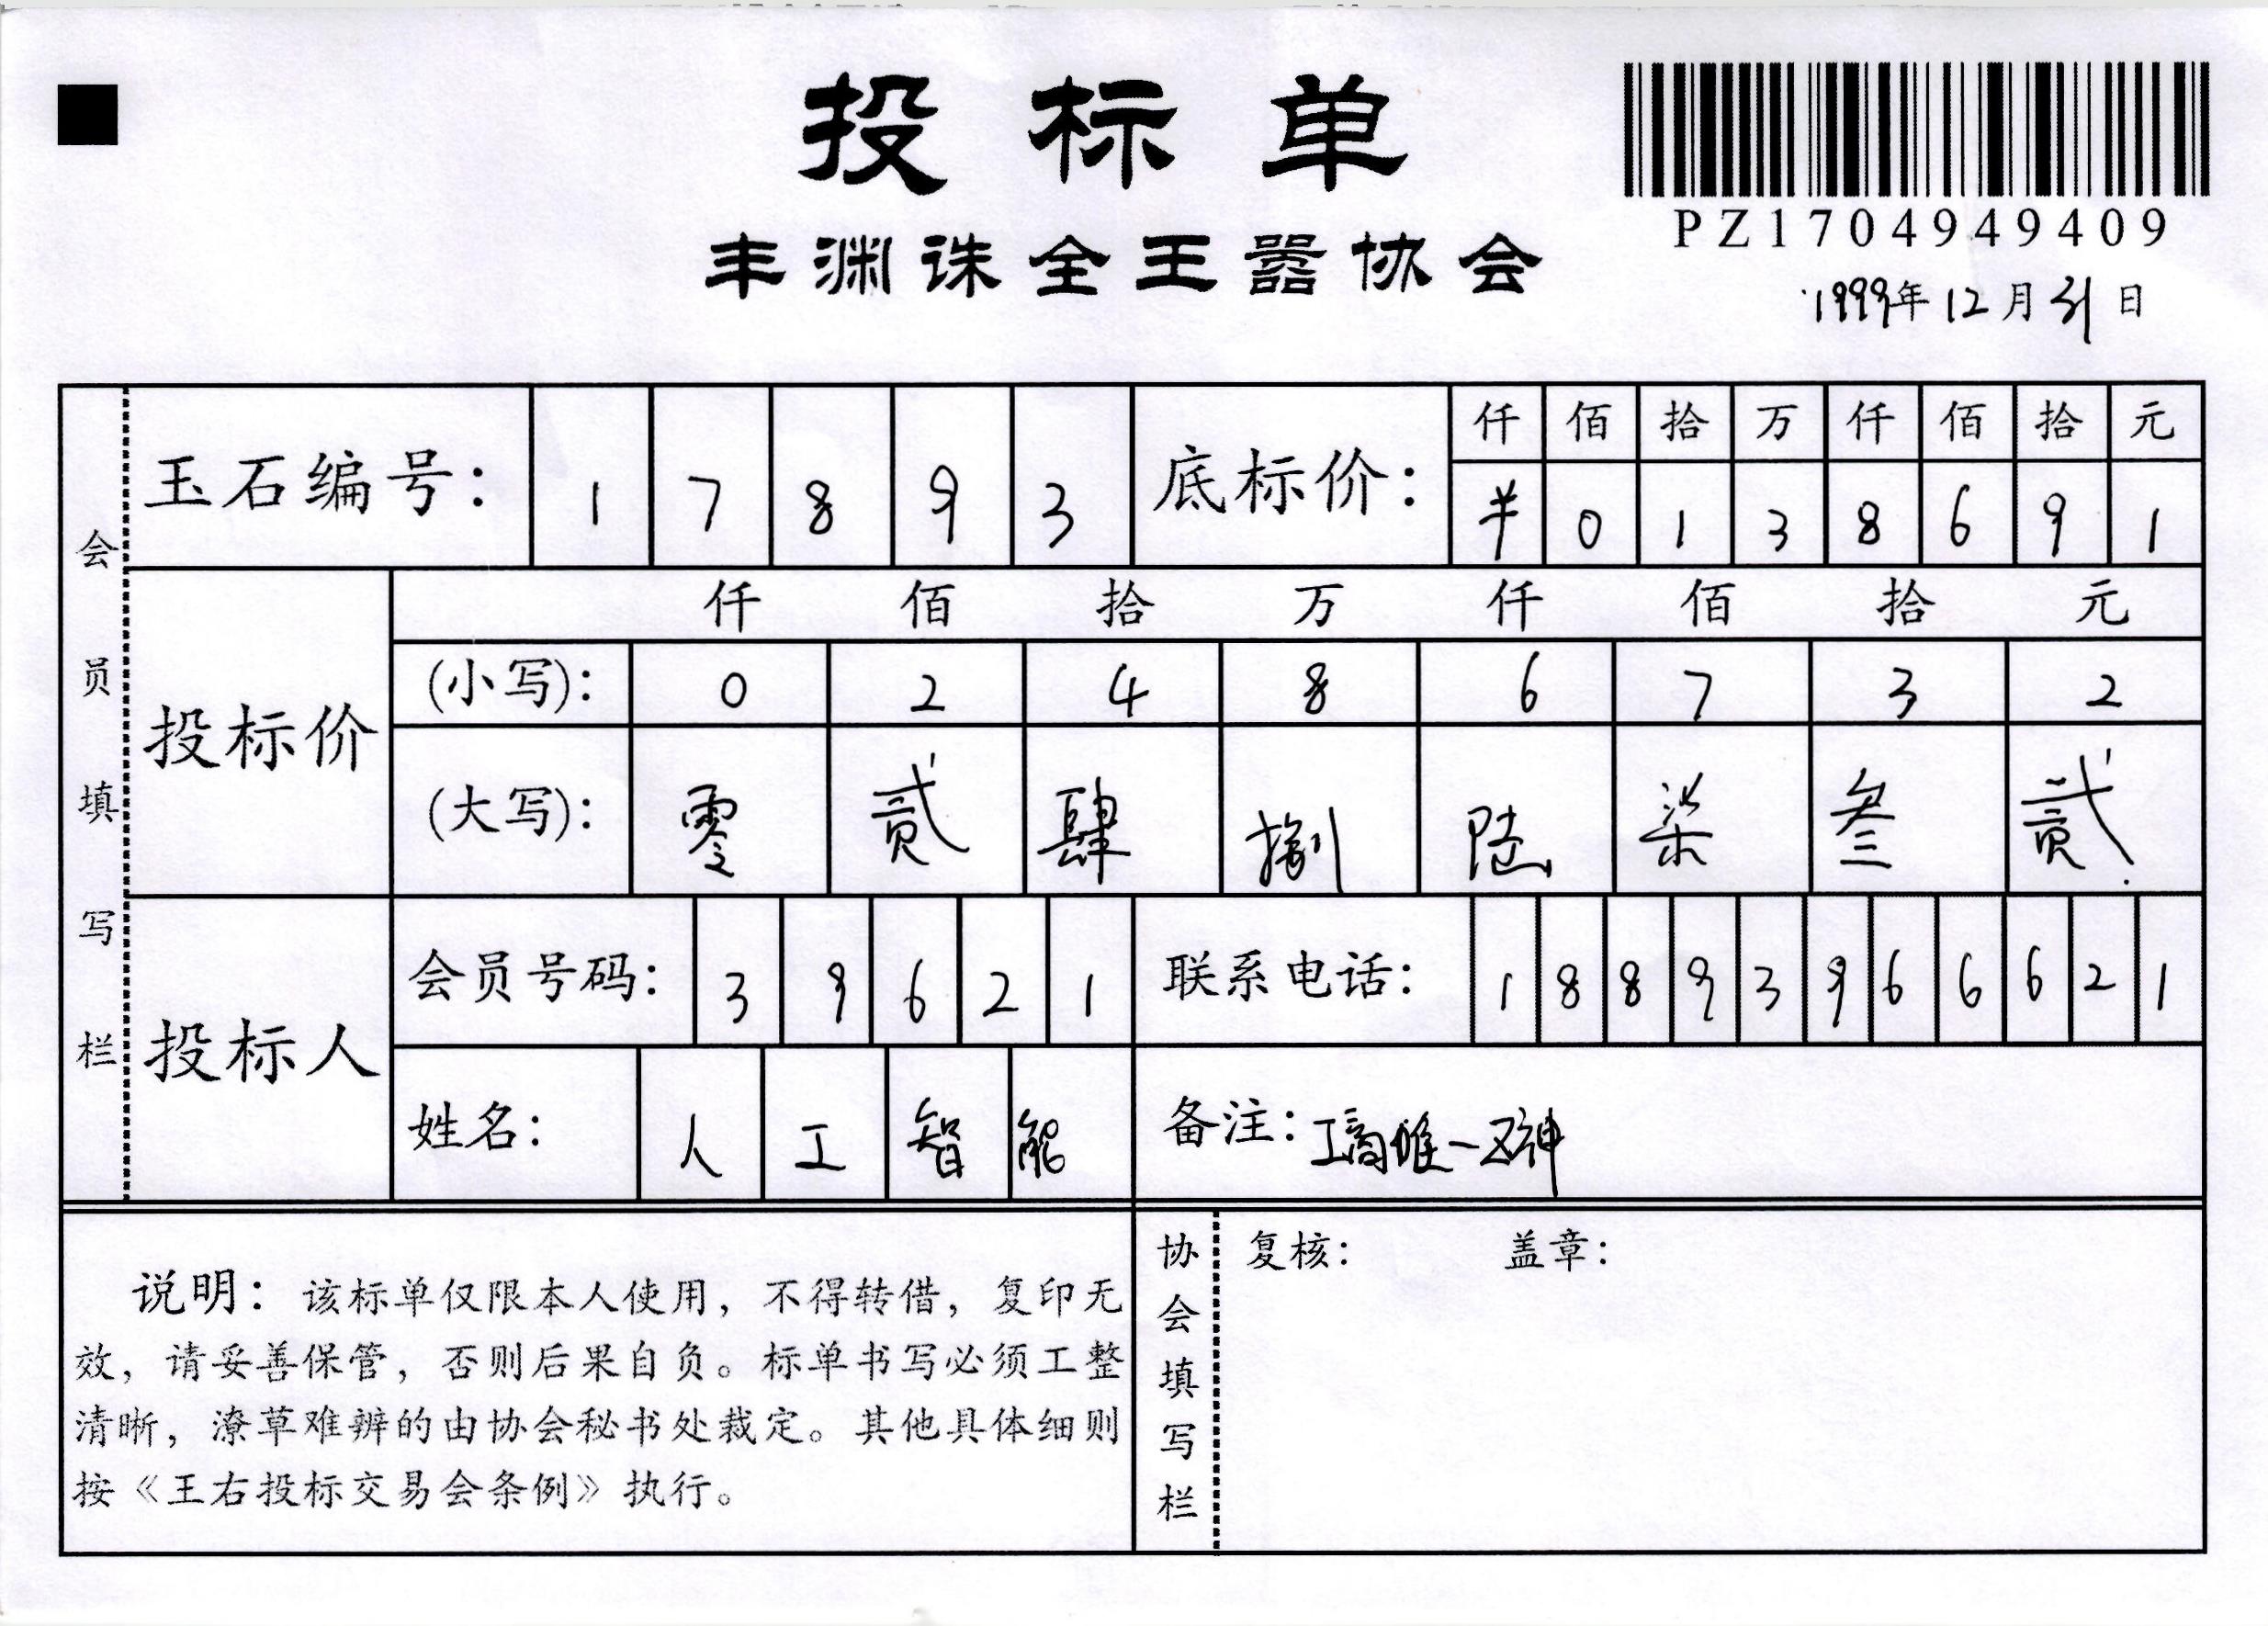 投标单
PZ1704949409
丰渊诛全王嚣协会
1999年12月31日
会员填写栏
玉石编号： 1 7 8 9 3 底标价： 仟 佰 拾 万 仟 佰 拾 元
羊 0 1 3 8 6 9 1
投标价 仟 佰 拾 万 仟 佰 拾 元
(小写)： 0 2 4 8 6 7 3 2
(大写)： 零 贰 肆 捌 陆 柒 叁 贰
投标人 会员号码： 3 9 6 2 1 联系电话： 1 8 8 9 3 9 6 6 6 2 1
姓名： 人 工 智 能 备注：工商唯一
说明：该标单仅限本人使用，不得转借，复印无
效，请妥善保管，否则后果自负。标单书写必须工整
清晰，潦草难辨的由协会秘书处裁定。其他具体细则
按《王右投标交易会条例》执行。
协会填写栏 复核： 盖章：